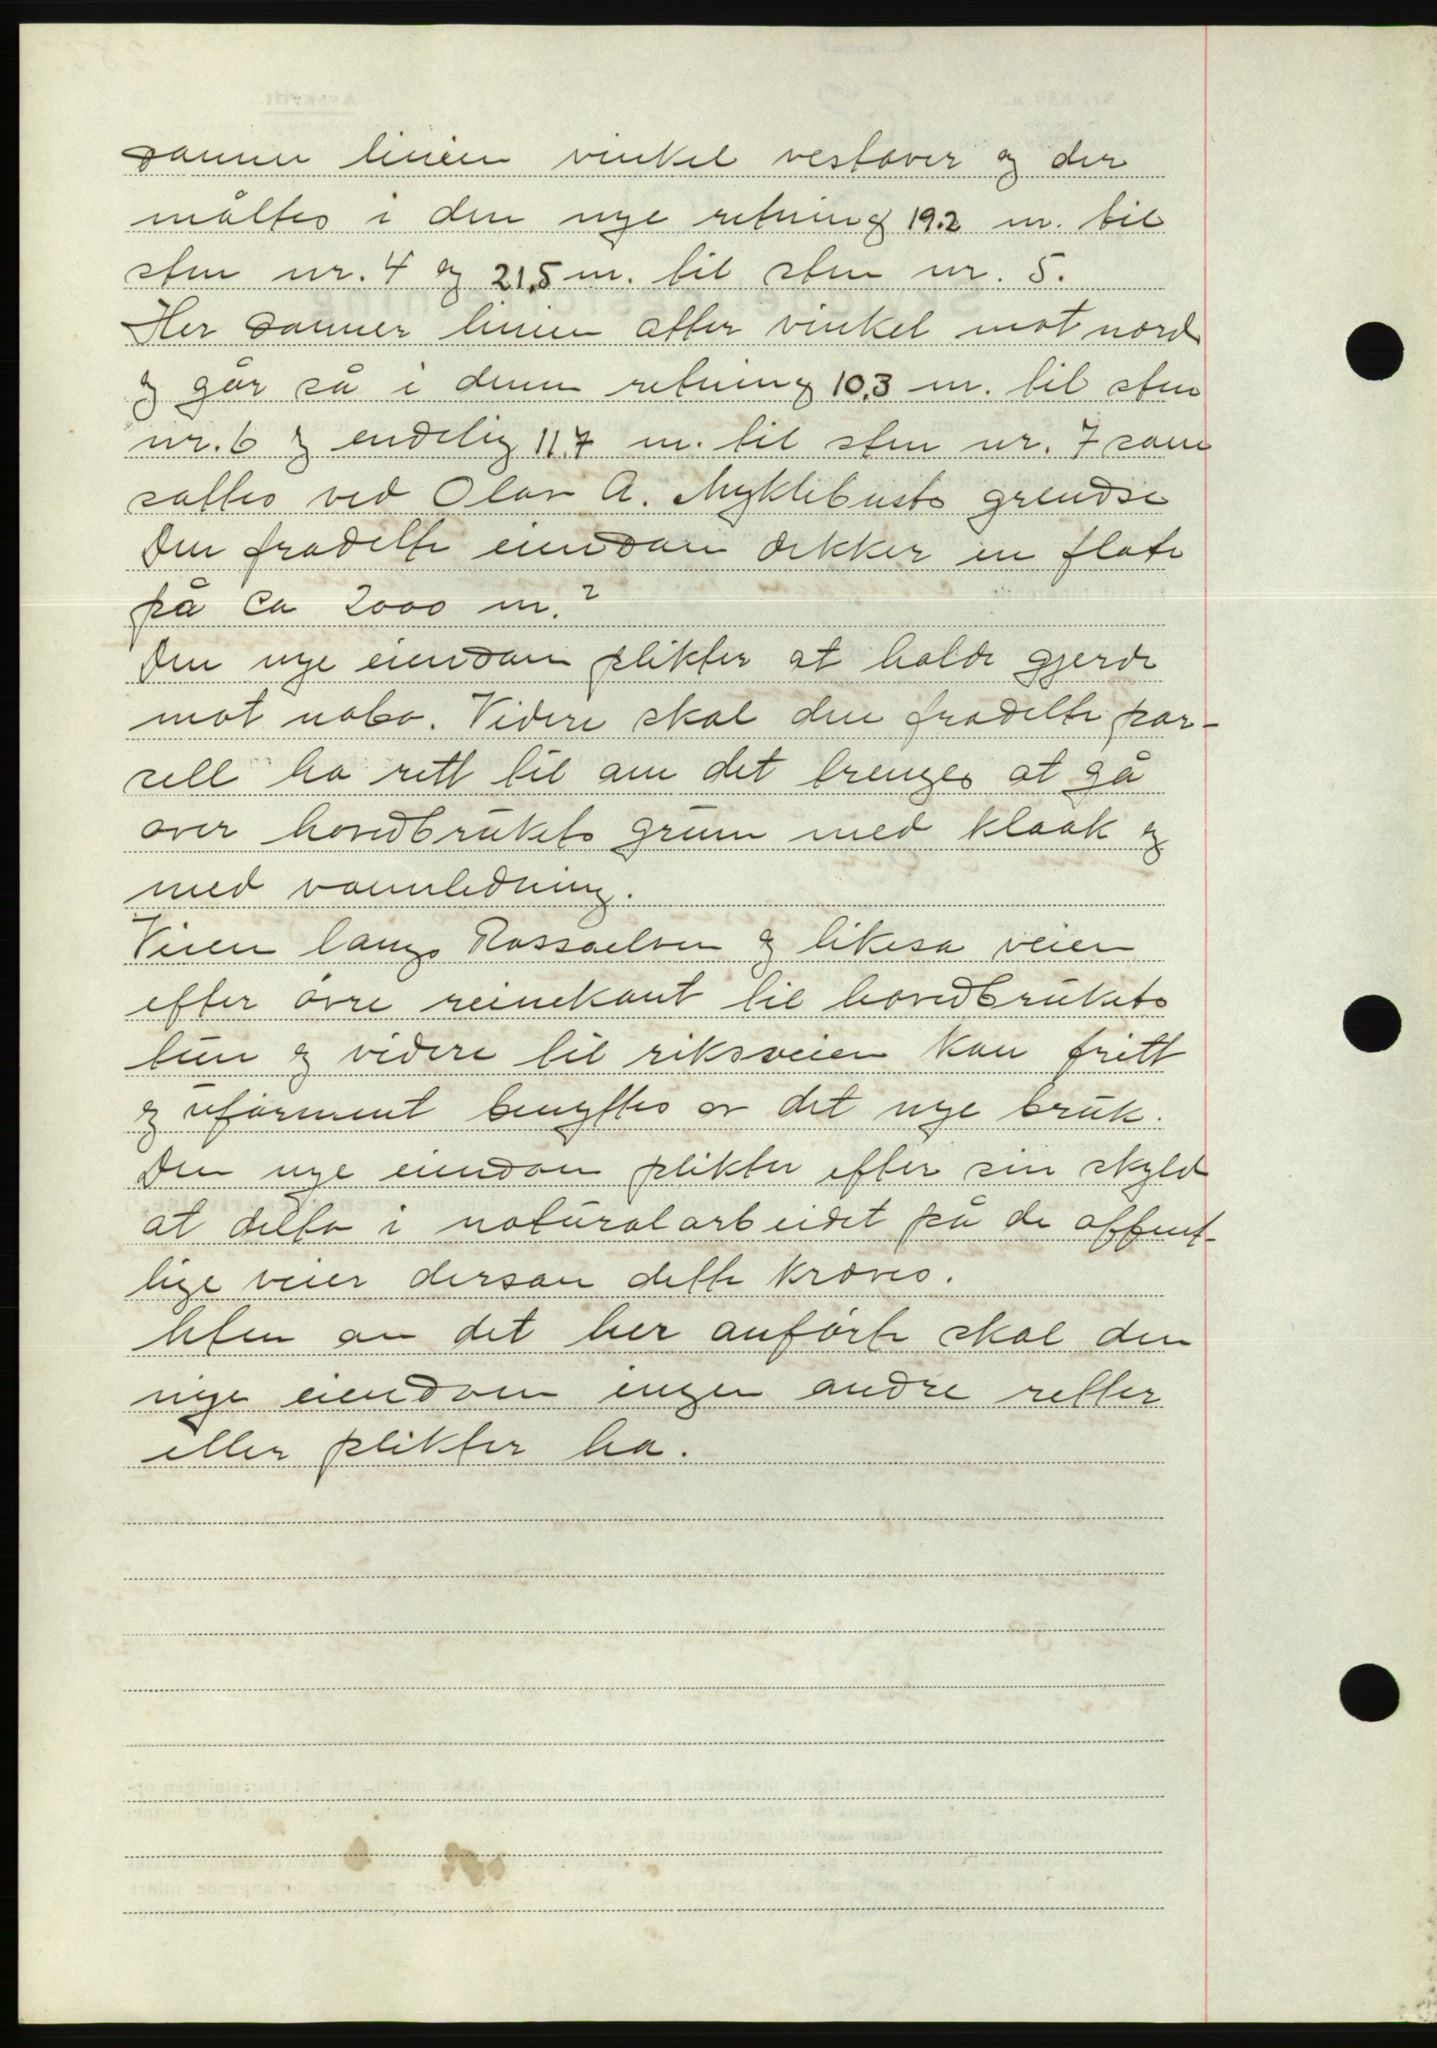 danner linien vinkel vestover og der
måltes i den nye retning 19.2 m. til
sten nr. 4 og 21,5 m. til sten nr. 5.
Her danner linien atter vinkel mot nord
og går så i denne retning 10,3 m. til sten
nr. 6 og endelig 11.7 m. til sten nr. 7 som
sattes ved Olav A. Myklebusts grendse
Den fradelte eiendom dekker en flate
på ca 2000 m.²
Den nye eiendom plikter at holde gjerde
mot nabo. Videre skal den fradelte par-
sell ha rett til om det trenges at gå
over hovedbrukets grunn med kloak og
med vannledning.
Veien langs Rossaelven og likesa veien
efter övre reinekant til hovedbrukets
tun og videre til riksveien kan fritt
og uforment benyttes av det nye bruk.
Den nye eiendom plikter efter sin skyld
at delta i naturalarbeidet på de offent-
lige veier dersom dette kræves.
Uten om det her anförte skal den
nye eiendom ingen andre retter
eller plikter ha.